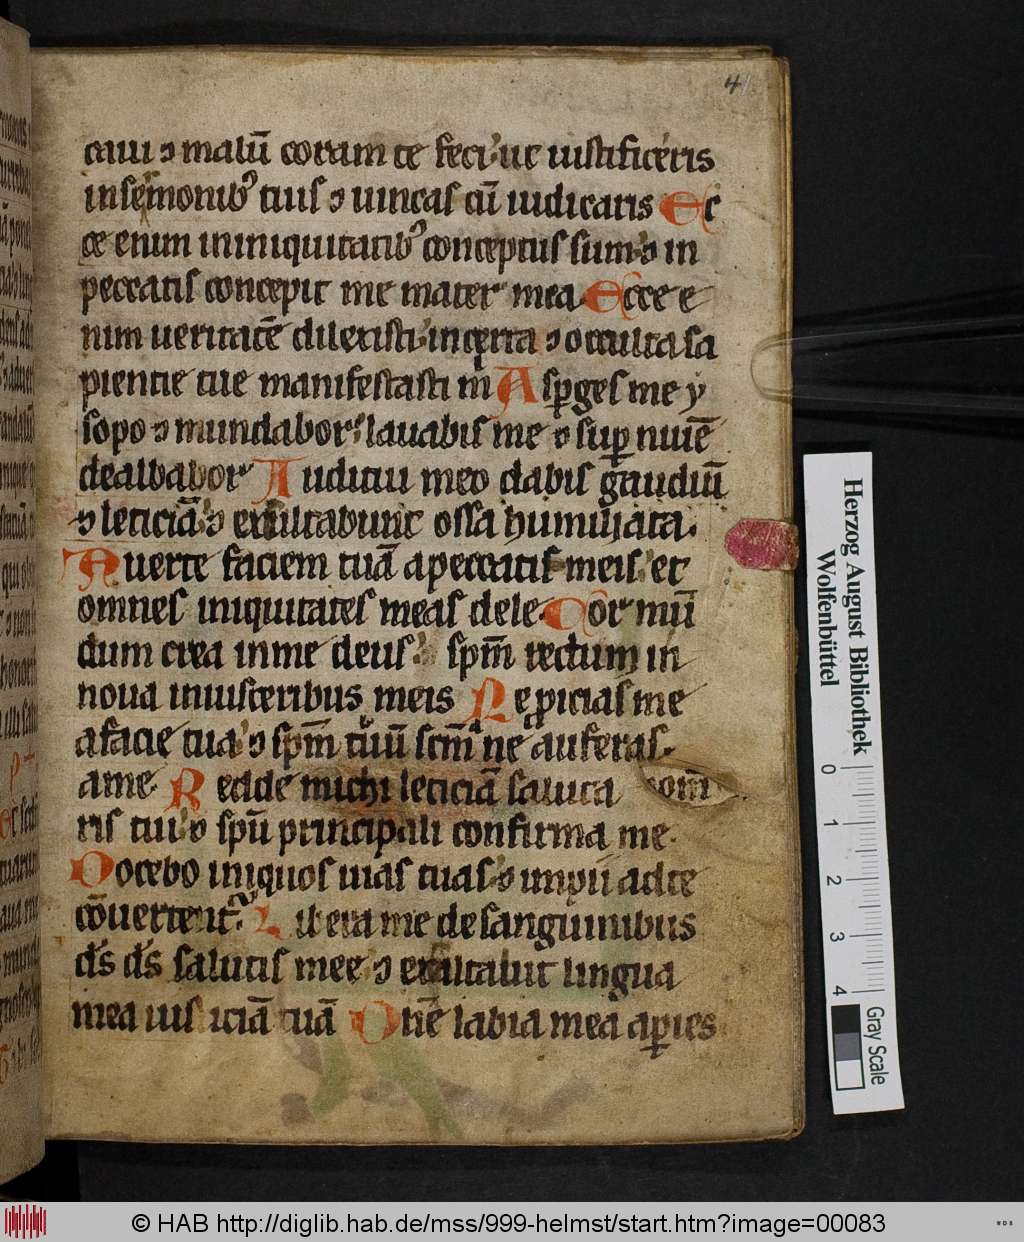 4
caui ⁊ malū coram te feci ut iustificeris
in sermonibꝰ tuis ⁊ uincas cū iudicaris Ec
ce enim in iniquitatibꝰ conceptus sum ⁊ in
peccatis concepit me mater mea Ecce e
nim ueritatē dilexisti incerta ⁊ occulta sa
pientie tue manifestasti m Asꝑges me y
sopo ⁊ mundabor lauabis me ⁊ suꝑ niuē
dealbabor Auditui meo dabis gaudiū
⁊ leticiā ⁊ exultabunt ossa humiliata.
Auerte faciem tuā a peccatis meis et
omnes iniquitates meas dele Cor mū
dum crea in me deus spm̄ rectum in
noua in uisceribus meis Ne ꝓicias me
a facie tua ⁊ spm̄ tuū scm̄ ne auferas
a me Redde michi leticiā saluta
ris tui ⁊ spū principali confirma me.
Docebo iniquos uias tuas ⁊ impii ad te
cōuertent᷑ Libera me de sanguinibus
ds̄ ds̄ salutis mee ⁊ exultabit lingua
mea ius iciā tuā Dn̄e labia mea aꝑies
Herzog August Bibliothek
Wolfenbüttel
0 1 2 3 4
Gray Scale
© HAB http://diglib.hab.de/mss/999-helmst/start.htm?image=00083